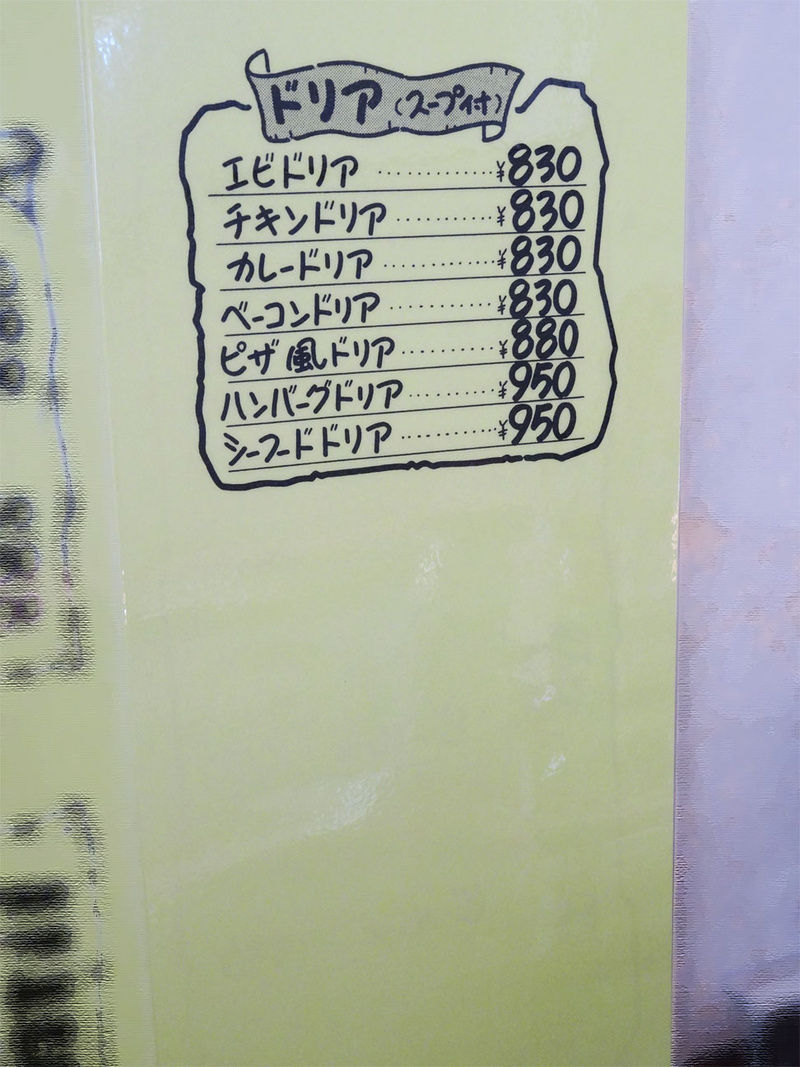 ドリア(スープ付)
エビドリア ············ ¥830
チキンドリア ·········· ¥830
カレードリア ··········· ¥830
ベーコンドリア ·········· ¥830
ピザ風ドリア ·········· ¥880
ハンバーグドリア ········· ¥950
シーフードドリア ·········· ¥950